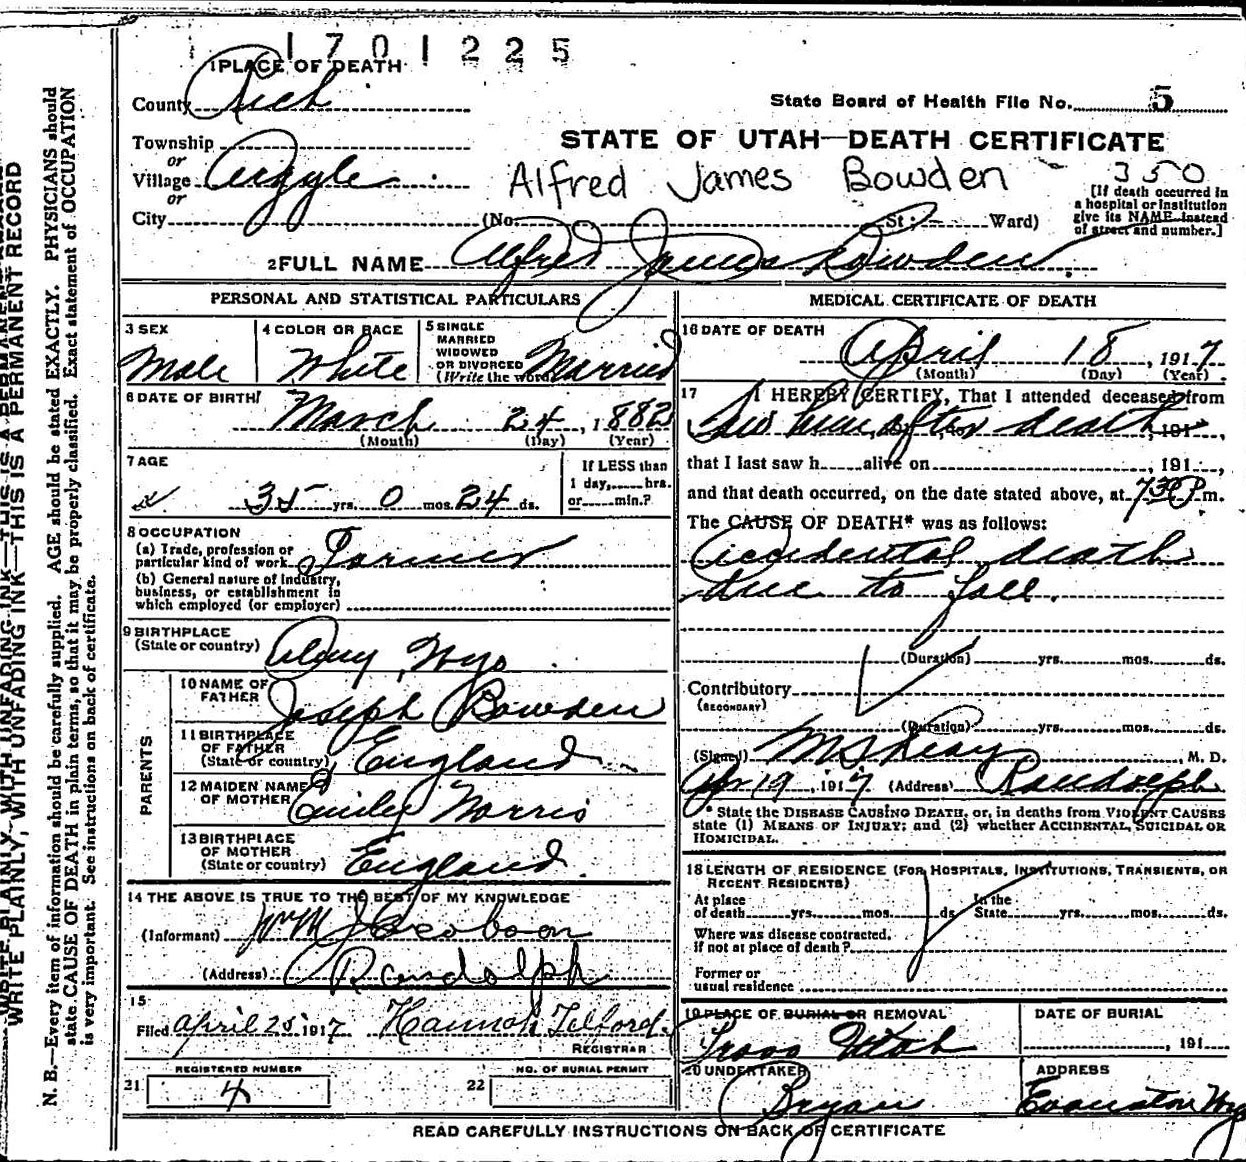 1701225
1 PLACE OF DEATH
County Rich
State Board of Health File No. 5
Township
or
Village Argyle
or
City (No. St; Ward)
STATE OF UTAH—DEATH CERTIFICATE
Alfred James Bowden - 350
[If death occurred in
a hospital or institution
give its NAME instead
of street and number.]
2 FULL NAME Alfred James Bowden.
PERSONAL AND STATISTICAL PARTICULARS
3 SEX
Male
4 COLOR OR RACE
White
5 SINGLE
MARRIED
WIDOWED
OR DIVORCED
(Write the word)
Married
6 DATE OF BIRTH
March 24, 1882
(Month) (Day) (Year)
7 AGE
35 yrs. 0 mos. 24 ds.
If LESS than
1 day, hrs.
or min.?
8 OCCUPATION
(a) Trade, profession or
particular kind of work Farmer
(b) General nature of Industry,
business, or establishment in
which employed (or employer)
9 BIRTHPLACE
(State or country) Almy, Wyo.
PARENTS
10 NAME OF
FATHER Joseph Bowden
11 BIRTHPLACE
OF FATHER
(State or country) England
12 MAIDEN NAME
OF MOTHER Emily Norris
13 BIRTHPLACE
OF MOTHER
(State or country) England.
14 THE ABOVE IS TRUE TO THE BEST OF MY KNOWLEDGE
(Informant) Wm Jacobson
(Address) Randolph
15
Filed April 25, 1917 Hannah Telford.
REGISTRAR
REGISTERED NUMBER
21 4
NO. OF BURIAL PERMIT
22
MEDICAL CERTIFICATE OF DEATH
16 DATE OF DEATH
April 18, 1917
(Month) (Day) (Year)
17 I HEREBY CERTIFY, That I attended deceased from
Saw him after death, 191 ,
that I last saw h alive on , 191 ,
and that death occurred, on the date stated above, at 7 30 P. m.
The CAUSE OF DEATH* was as follows:
Accidental death
due to fall.
(Duration) yrs. mos. ds.
Contributory
(SECONDARY)
(Duration) yrs. mos. ds.
(Signed) M.D.
Apr 19, 1917 (Address) Randolph
* State the DISEASE CAUSING DEATH, or, in deaths from VIOLENT CAUSES
state (1) MEANS OF INJURY; and (2) whether ACCIDENTAL, SUICIDAL OR
HOMICIDAL.
18 LENGTH OF RESIDENCE (FOR HOSPITALS, INSTITUTIONS, TRANSIENTS, OR
RECENT RESIDENTS)
At place
of death yrs. mos. ds.
In the
State yrs. mos. ds.
Where was disease contracted,
if not at place of death?
Former or
usual residence
19 PLACE OF BURIAL OR REMOVAL
Utah
DATE OF BURIAL
, 191
20 UNDERTAKER
Bryan
ADDRESS
Evanston Wyo
READ CAREFULLY INSTRUCTIONS ON BACK OF CERTIFICATE
WRITE PLAINLY, WITH UNFADING INK—THIS IS A PERMANENT RECORD
N. B.—Every item of information should be carefully supplied. AGE should be stated EXACTLY. PHYSICIANS should
state CAUSE OF DEATH in plain terms, so that it may be properly classified. Exact statement of OCCUPATION
is very important. See instructions on back of certificate.